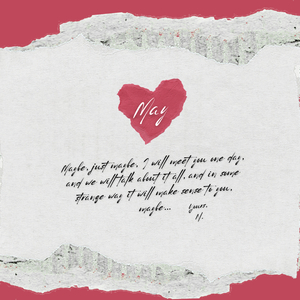 May
Maybe, just maybe, I will meet you one day,
and we will talk about it all, and in some
strange way it will make sense to you,
maybe... Yours,
H.